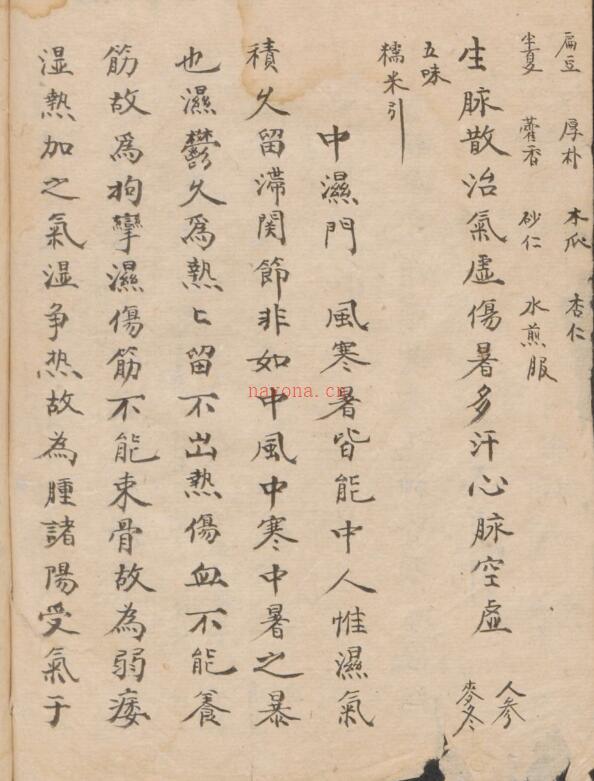 扁豆 厚朴 木瓜 杏仁
半夏 藿香 砂仁 水煎服
生脉散治氣虛傷暑多汗心脉空虛 人参
麥冬
五味
糯米引
中濕門 風寒暑皆能中人惟濕氣
積久留滞関節非如中風中寒中暑之暴
也濕鬱久爲熱〻留不出熱傷血不能養
筋故爲拘攣濕傷筋不能束骨故為弱痿
湿熱加之氣湿争热故為腫諸陽受氣于
nayona.cn